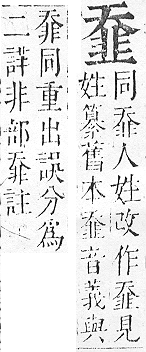 同人姓改作見
姓纂舊本音義與
同重出誤分爲
二詳非部註